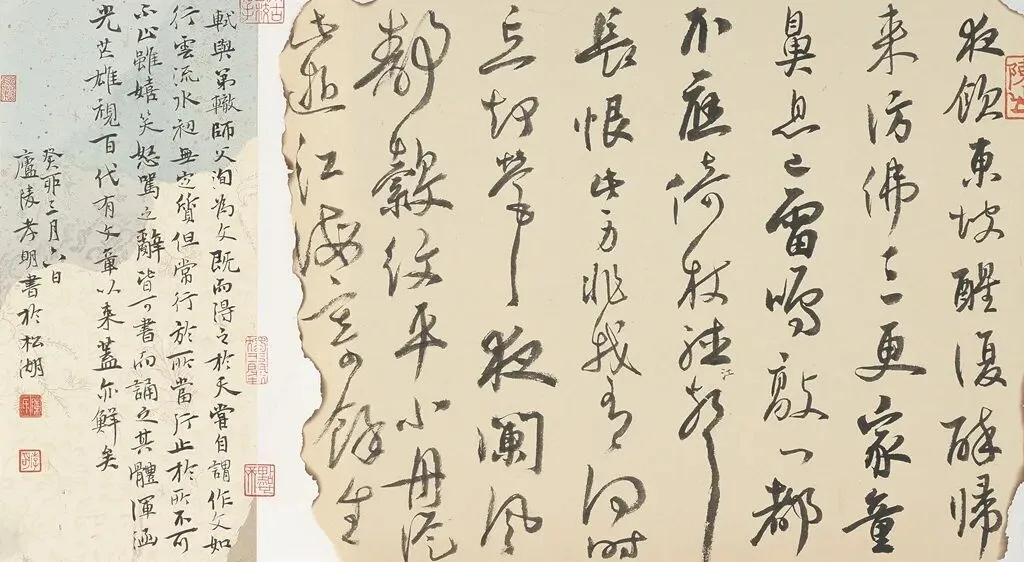 夜飲東坡醒復醉歸
来仿佛三更家童
鼻息已雷鳴敲門都
不應倚杖聽江聲
長恨此身非我有何時
忘却營營夜闌風
靜縠紋平小舟從
此逝江海寄餘生
軾與弟轍師父洵為文既而得之於天嘗自謂作文如
行雲流水初無定質但常行於所當行止於所不可
不止雖嬉笑怒罵之辭皆可書而誦之其體渾涵
光芒雄視百代有文章以来蓋亦鮮矣
癸卯三月六日
廬陵孝明書於松湖